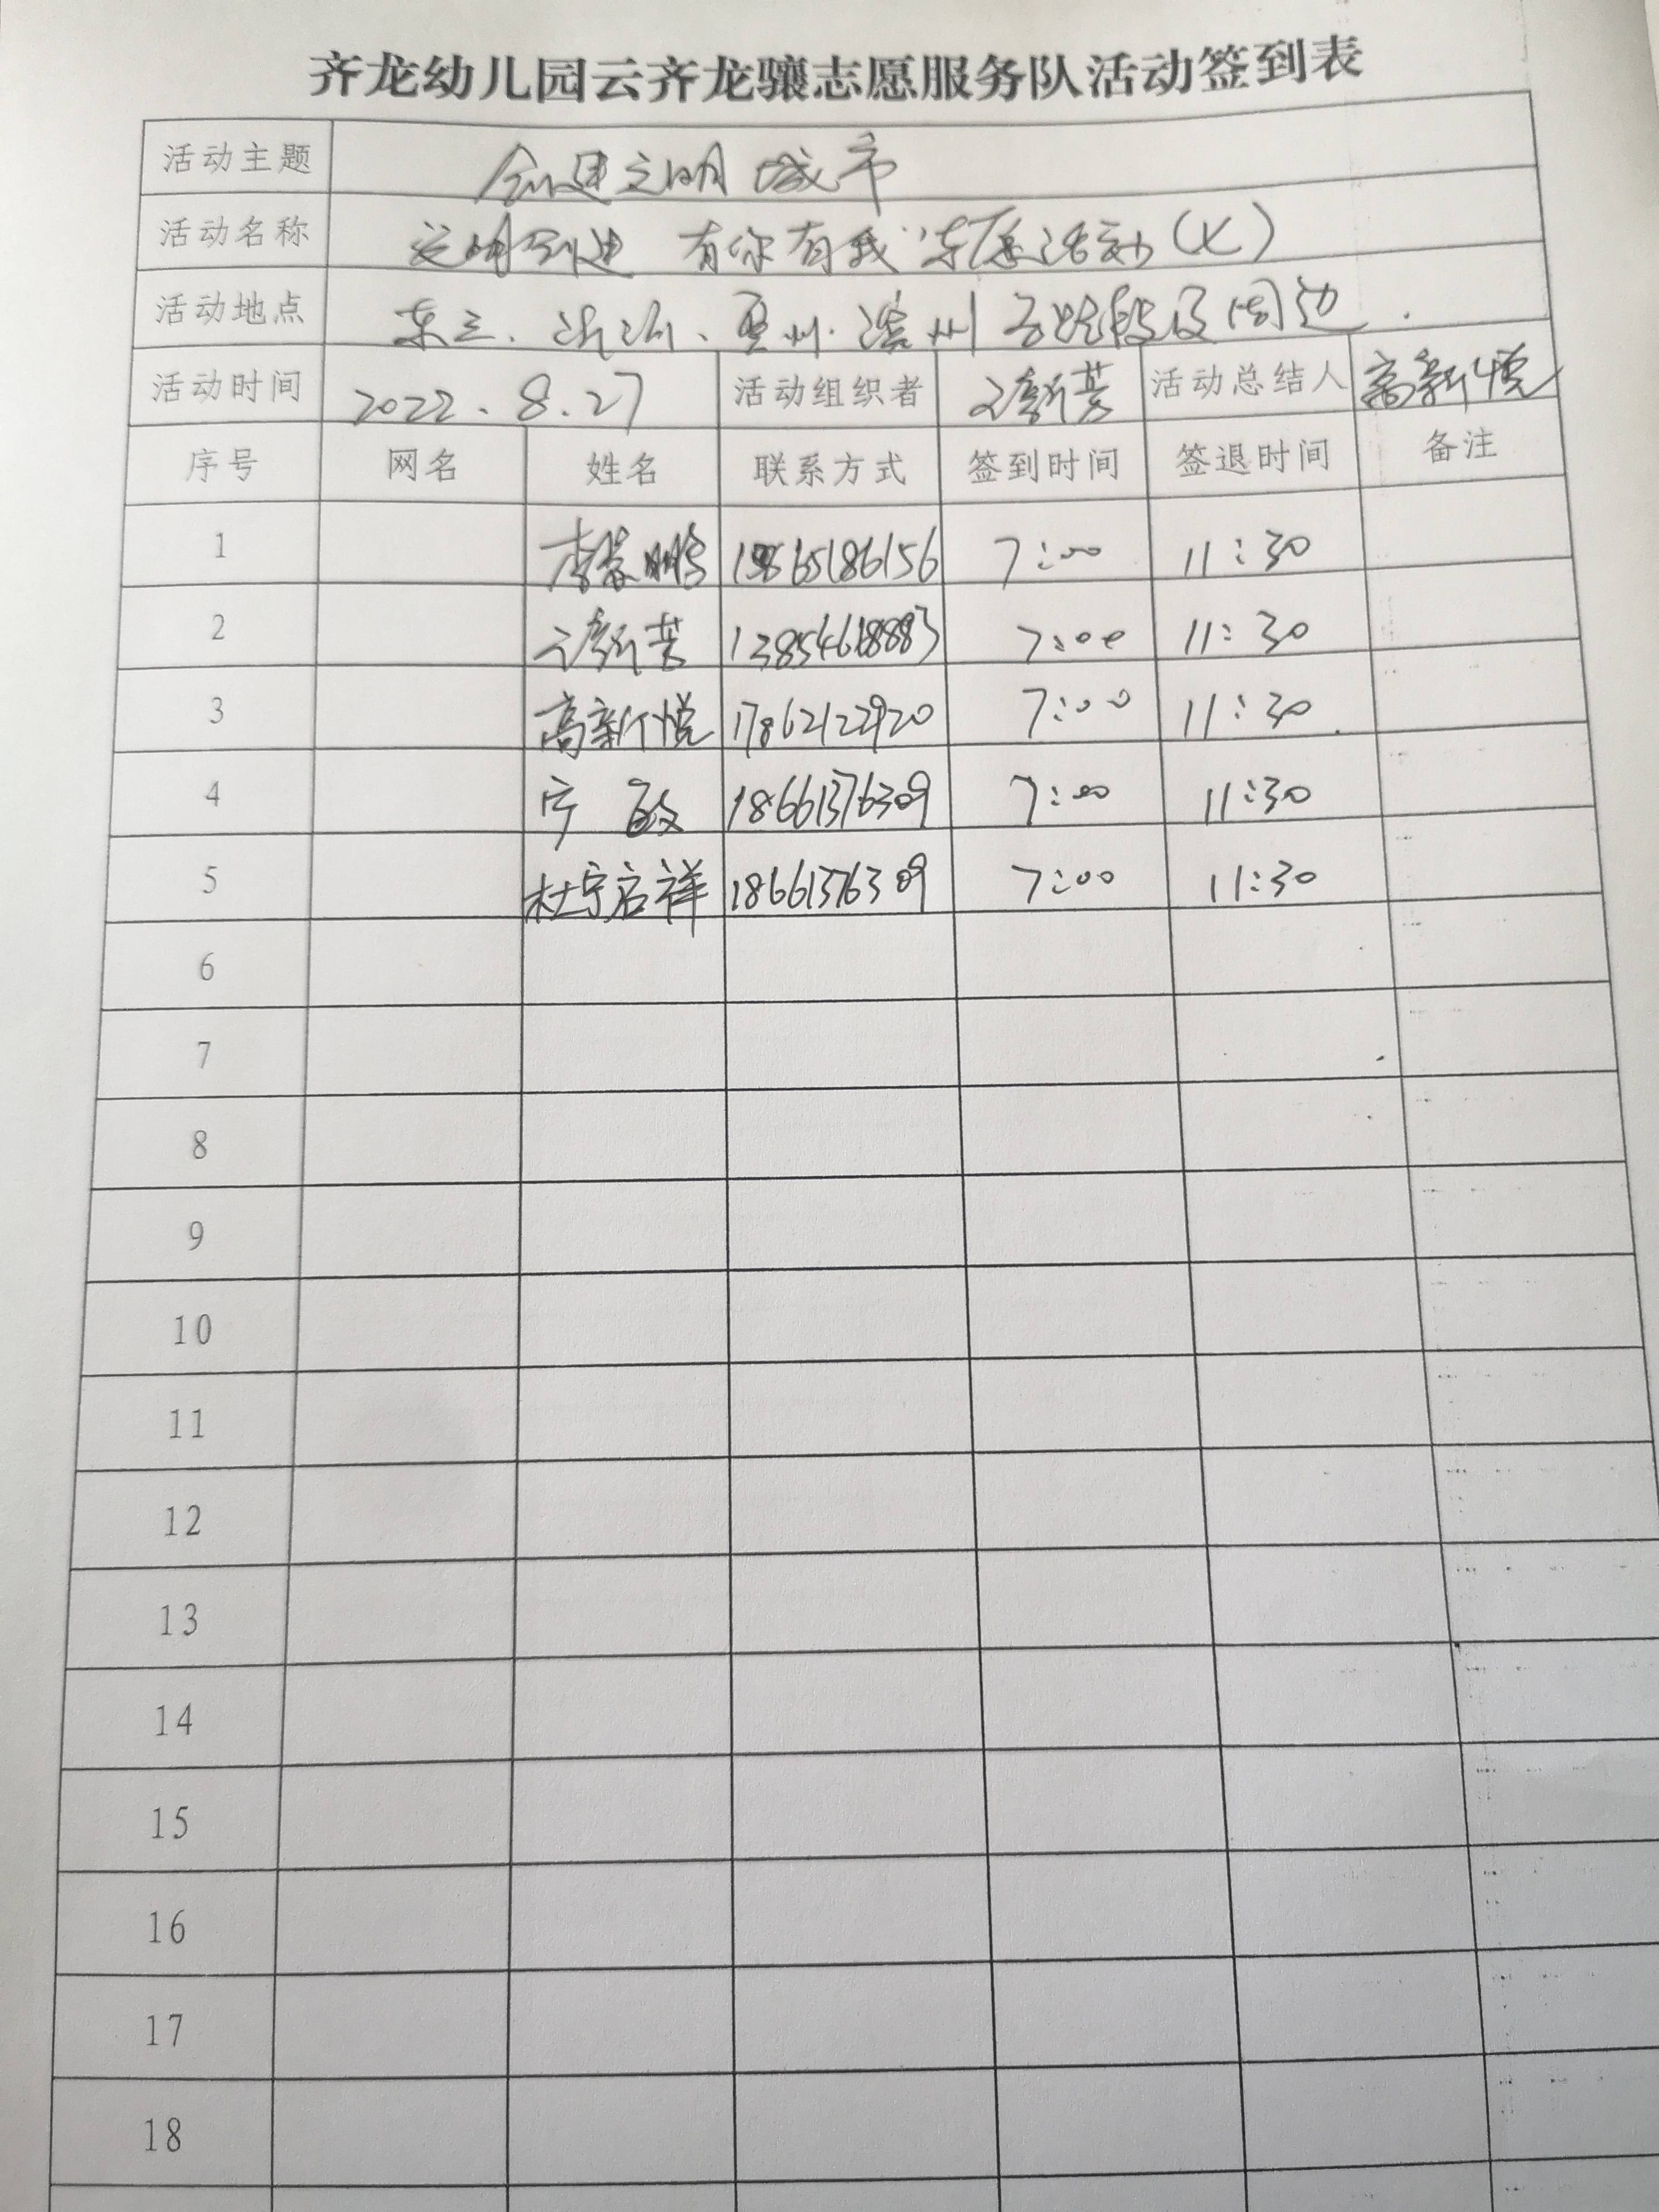 齐龙幼儿园云齐龙骧志愿服务队活动签到表
活动主题 创建文明城市
活动名称 文明创建 有你有我 志愿活动(七)
活动地点 东三、 州 及周边.
活动时间 2022.8.27 活动组织者 新芳 活动总结人 高新悦
序号 网名 姓名 联系方式 签到时间 签退时间 备注
1 李 鹏 65186156 7:00 11:30
2 新芳 7:00 11:30
3 高新悦 17862122920 7:00 11:30
4 宁 敏 18661376309 7:00 11:30
5 杜宁启祥 18661376309 7:00 11:30
6
7
8
9
10
11
12
13
14
15
16
17
18